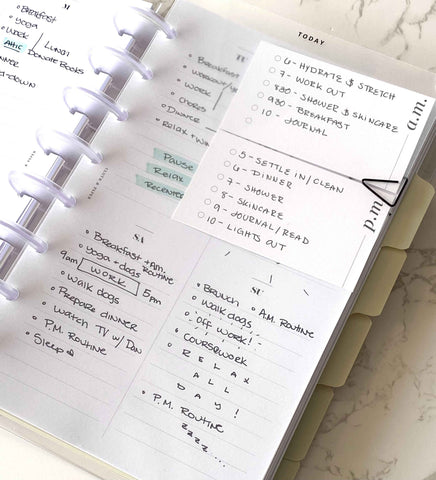 Breakfast
yoga
work
Attic / Lunch
Donate Books
11
Breakfast
work
chores
Dinner
Pause
Relax
TODAY
6 - HYDRATE & STRETCH
7 - WORK OUT
830 - SHOWER & SKINCARE
930 - BREAKFAST
10 - JOURNAL
a.m.
5 - SETTLE IN/CLEAN
6 - DINNER
7 - SHOWER
8 - SKINCARE
9 - JOURNAL/READ
10 - LIGHTS OUT
Breakfast + A.M.
yoga + dogs ROUTINE
9am WORK 5pm
walk dogs
Prepare dinner
watch TV w/ Dan
P.M. Routine
Sleep
Brunch • A.M. ROUTINE
Walk dogs
Off work!
COURSEWORK
RELAX
ALL
DAY!
P.M. ROUTINE
zzzz....